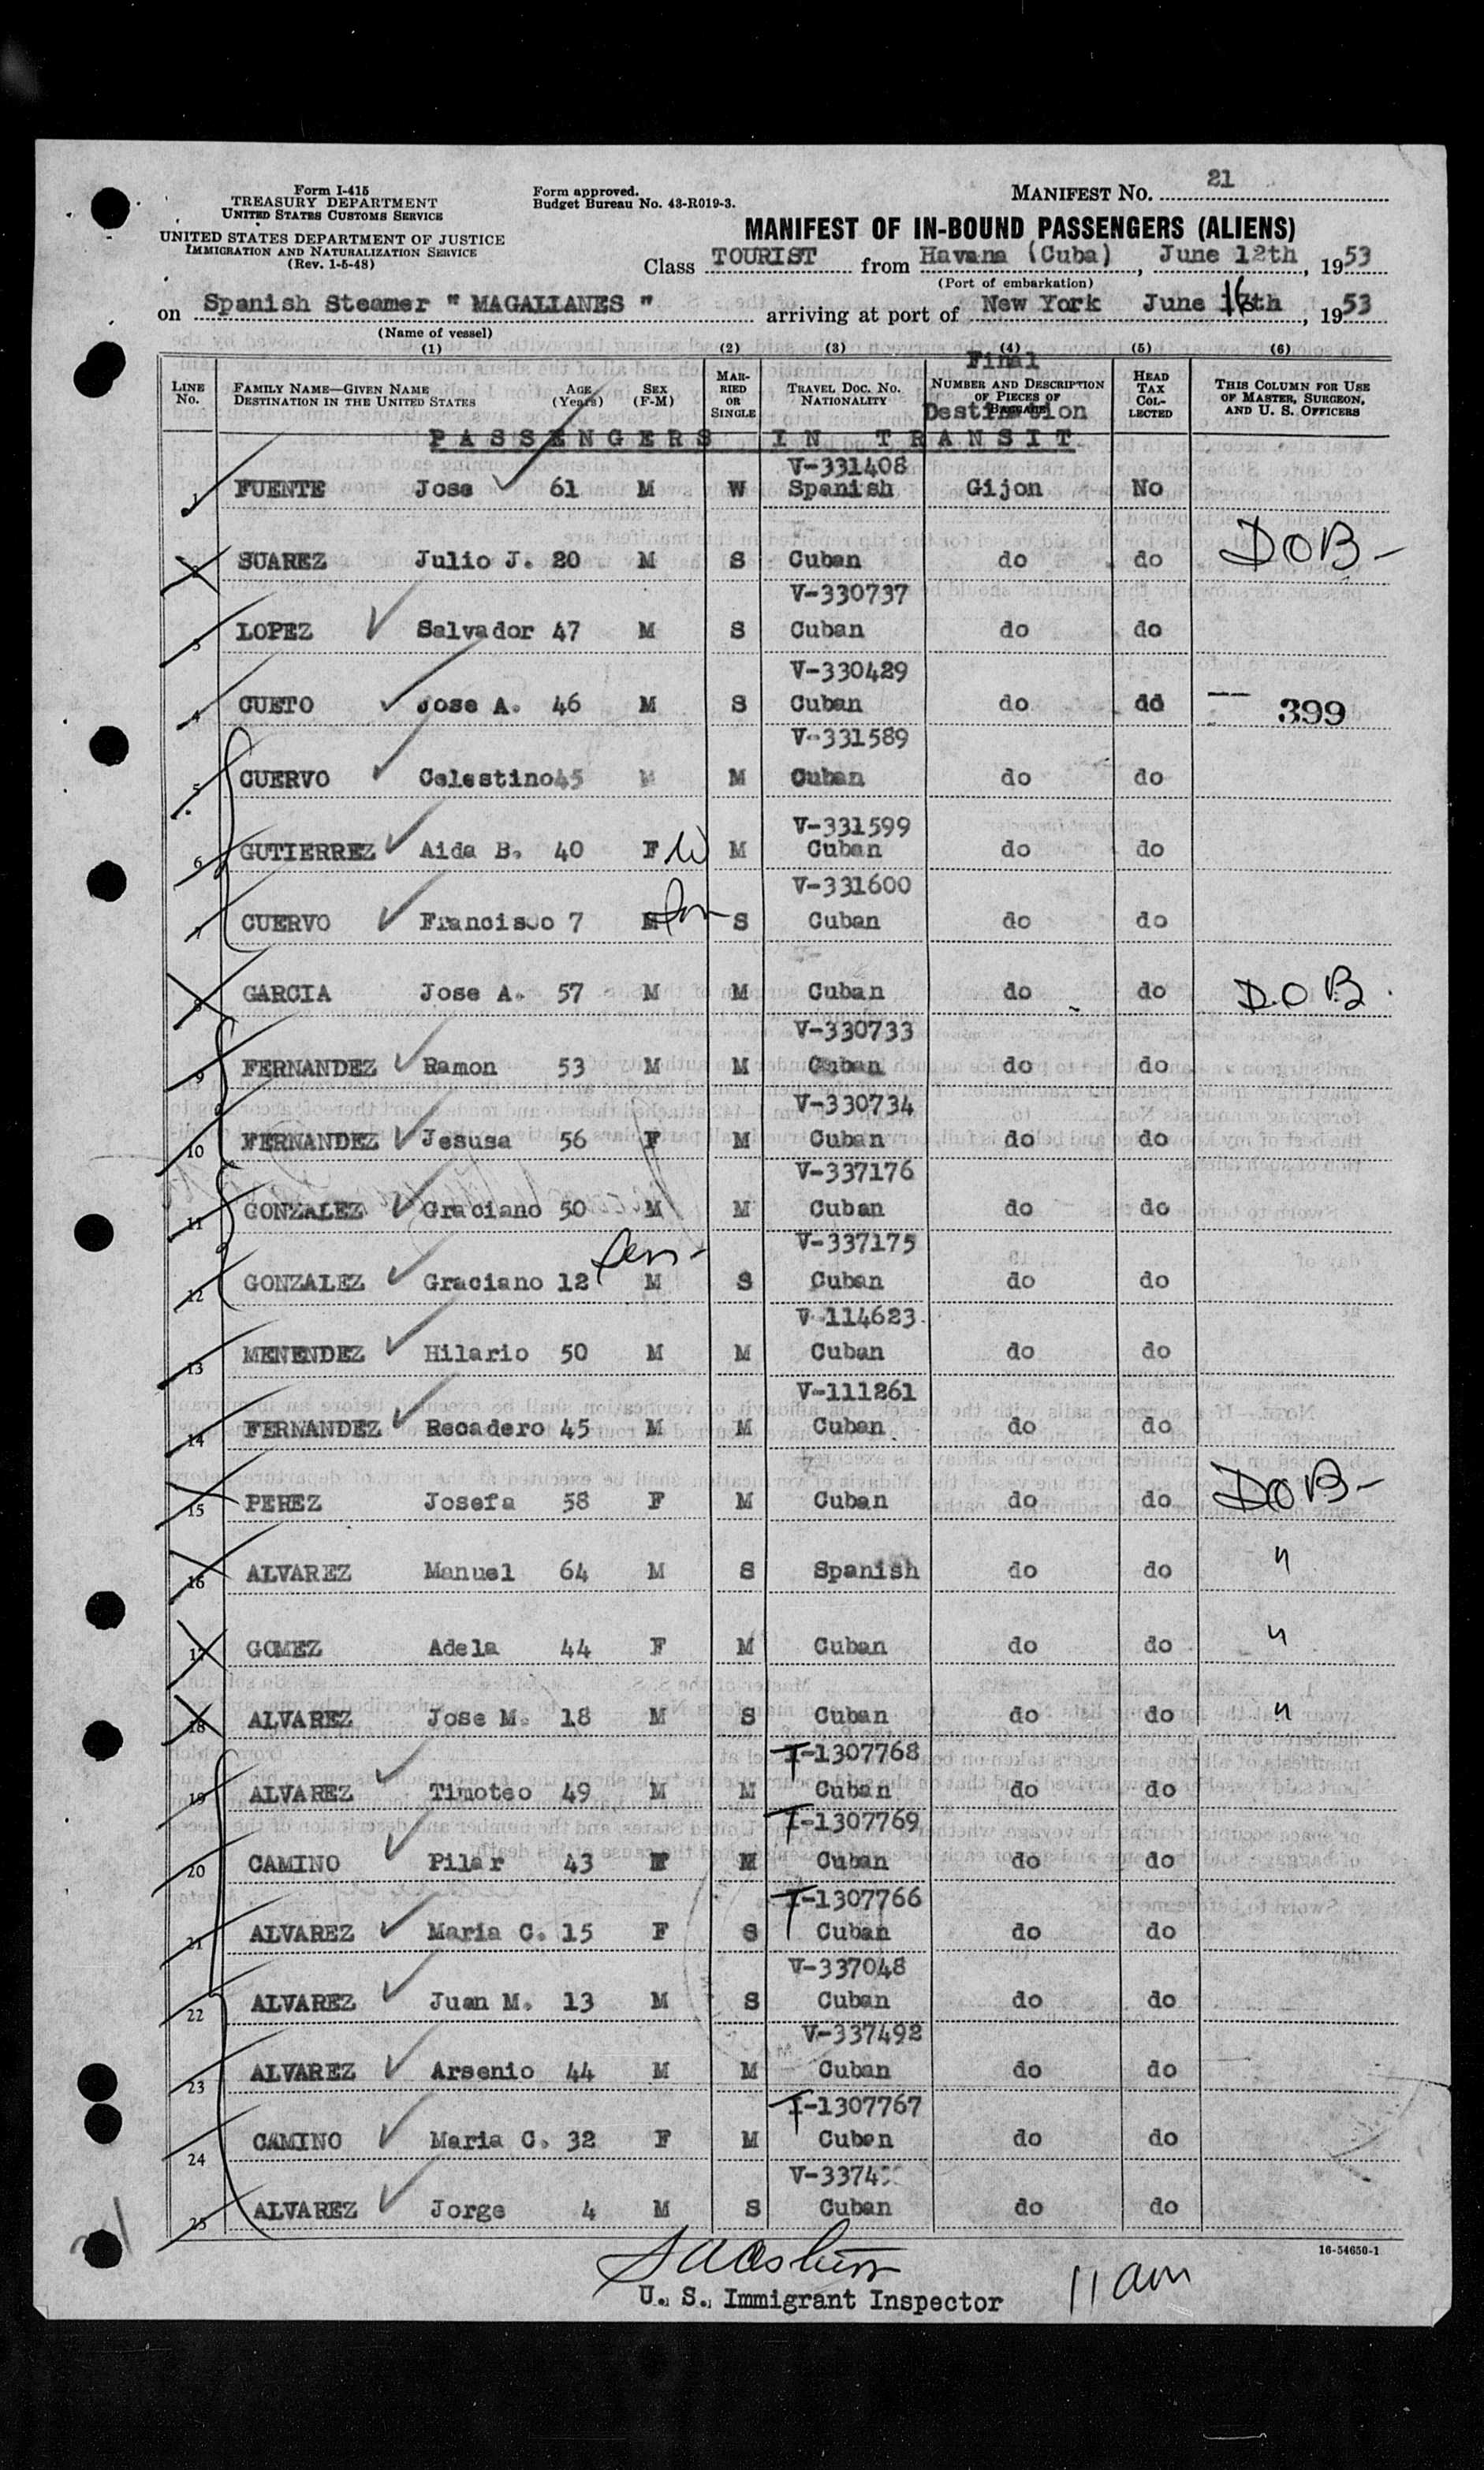 Form I-415
TREASURY DEPARTMENT
UNITED STATES CUSTOMS SERVICE
UNITED STATES DEPARTMENT OF JUSTICE
IMMIGRATION AND NATURALIZATION SERVICE
(Rev. 1-5-48)
Form approved.
Budget Bureau No. 43-R019-3.
MANIFEST NO. 21
MANIFEST OF IN-BOUND PASSENGERS (ALIENS)
Class TOURIST from Havana (Cuba), June 12th, 1953
(Port of embarkation)
on Spanish Steamer " MAGALLANES " arriving at port of New York June 16th, 1953
(Name of vessel)
(1) (2) (3) (4) (5) (6)
LINE NO.
FAMILY NAME—GIVEN NAME
DESTINATION IN THE UNITED STATES
AGE (Years)
SEX (F-M)
MARRIED OR SINGLE
TRAVEL DOC. NO. NATIONALITY
Final
NUMBER AND DESCRIPTION OF PIECES OF BAGGAGE
Destination
HEAD TAX COLLECTED
THIS COLUMN FOR USE OF MASTER, SURGEON, AND U. S. OFFICERS
PASSENGERS IN TRANSIT
V-331408
1 FUENTE Jose 61 M W Spanish Gijon No
2 SUAREZ Julio J. 20 M S Cuban do do DOB-
V-330737
3 LOPEZ Salvador 47 M S Cuban do do
V-330429
4 CUETO Jose A. 46 M S Cuban do dd 399
V-331589
5 CUERVO Celestino 45 M M Cuban do do
V-331599
6 GUTIERREZ Aida B. 40 F W M Cuban do do
V-331600
7 CUERVO Francisco 7 M son S Cuban do do
8 GARCIA Jose A. 57 M M Cuban do do D.O.B.
V-330733
9 FERNANDEZ Ramon 53 M M Cuban do do
V-330734
10 FERNANDEZ Jesusa 56 F M Cuban do do
V-337176
11 GONZALEZ Graciano 50 M M Cuban do do
V-337175
12 GONZALEZ Graciano 12 son M S Cuban do do
V-114623
13 MENENDEZ Hilario 50 M M Cuban do do
V-111261
14 FERNANDEZ Recadero 45 M M Cuban do do
15 PEREZ Josefa 58 F M Cuban do do DOB-
16 ALVAREZ Manuel 64 M S Spanish do do "
17 GOMEZ Adela 44 F M Cuban do do "
18 ALVAREZ Jose M. 18 M S Cuban do do "
T-1307768
19 ALVAREZ Timoteo 49 M M Cuban do do
T-1307769
20 CAMINO Pilar 43 F M Cuban do do
T-1307766
21 ALVAREZ Maria C. 15 F S Cuban do do
V-337048
22 ALVAREZ Juan M. 13 M S Cuban do do
V-337492
23 ALVAREZ Arsenio 44 M M Cuban do do
T-1307767
24 CAMINO Maria C. 32 F M Cuban do do
25 ALVAREZ Jorge 4 M S Cuban do do
16-54650-1
U. S. Immigrant Inspector
11 am